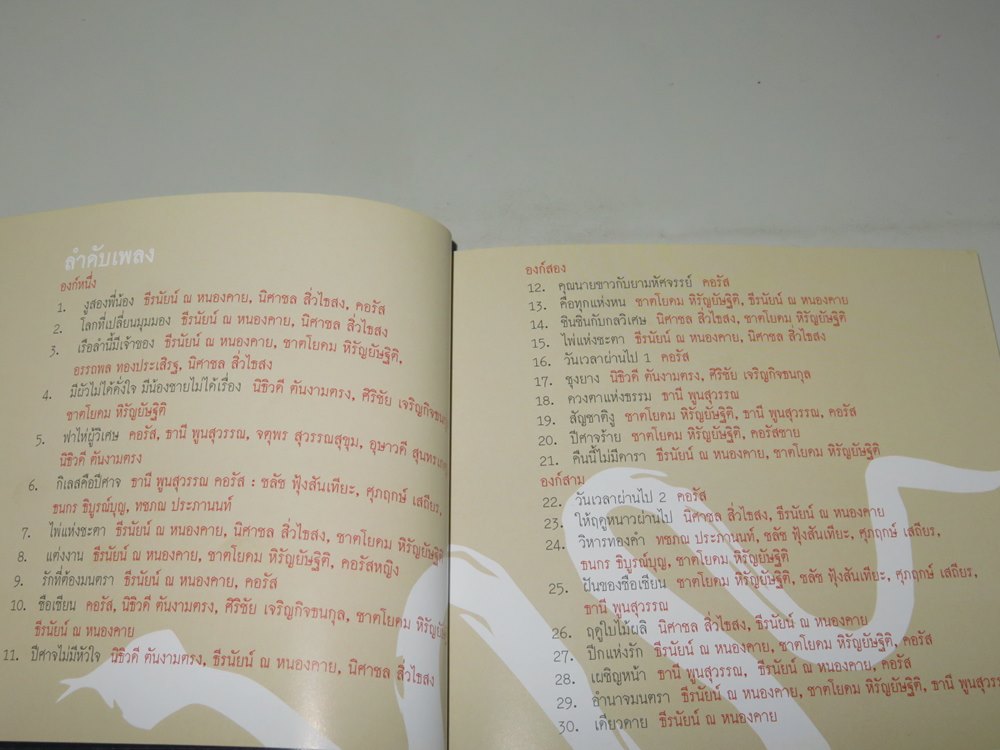 ลำดับเพลง
องก์หนึ่ง
1. งูสองพี่น้อง ธีรนัยน์ ณ หนองคาย, นิศาชล สิ่วไธสง, คอรัส
2. โลกที่เปลี่ยนมุมมอง ธีรนัยน์ ณ หนองคาย, นิศาชล สิ่วไธสง
3. เรือลำนี้มีเจ้าของ ธีรนัยน์ ณ หนองคาย, ชาตโยดม หิรัญยัษฐิติ,
อรรถพล ทองประเสิรฐ, นิศาชล สิ่วไธสง
4. มีผัวไม่ได้ดั่งใจ มีน้องชายไม่ได้เรื่อง นิธิวดี ตันงามตรง, ศิริชัย เจริญกิจธนกุล,
ชาตโยดม หิรัญยัษฐิติ
5. ฟาไห่ผู้วิเศษ คอรัส, ธานี พูนสุวรรณ, จตุพร สุวรรณสุขุม, อุษาวดี
นิธิวดี ตันงามตรง
6. กิเลสคือปีศาจ ธานี พูนสุวรรณ คอรัส : ชลัช ฟุ้งสันเทียะ, ศุภฤกษ์ เสถียร,
ธนกร ธิบูรณ์บุญ, ทชภณ ประภานนท์
7. ไพ่แห่งชะตา ธีรนัยน์ ณ หนองคาย, นิศาชล สิ่วไธสง, ชาตโยดม หิรัญยัษฐิติ
8. แต่งงาน ธีรนัยน์ ณ หนองคาย, ชาตโยดม หิรัญยัษฐิติ, คอรัสหญิง
9. รักที่ต้องมนตรา ธีรนัยน์ ณ หนองคาย, คอรัส
10. ชื่อเซียน คอรัส, นิธิวดี ตันงามตรง, ศิริชัย เจริญกิจธนกุล, ชาตโยดม
ธีรนัยน์ ณ หนองคาย
11. ปีศาจไม่มีหัวใจ นิธิวดี ตันงามตรง, ธีรนัยน์ ณ หนองคาย, นิศาชล สิ่วไธสง
องก์สอง
12. คุณนายขาวกับยามหัศจรรย์ คอรัส
13. คือทุกแห่งหน ชาตโยดม หิรัญยัษฐิติ, ธีรนัยน์ ณ หนองคาย
14. ชินชินกับกลวิเศษ นิศาชล สิ่วไธสง, ชาตโยดม หิรัญยัษฐิติ
15. ไพ่แห่งชะตา ธีรนัยน์ ณ หนองคาย, นิศาชล สิ่วไธสง
16. วันเวลาผ่านไป 1 คอรัส
17. ชุงยาง นิธิวดี ตันงามตรง, ศิริชัย เจริญกิจธนกุล
18. ดวงตาแห่งธรรม ธานี พูนสุวรรณ
19. สัญชาติงู ชาตโยดม หิรัญยัษฐิติ, ธานี พูนสุวรรณ, คอรัส
20. ปีศาจร้าย ชาตโยดม หิรัญยัษฐิติ, คอรัสชาย
21. คืนนี้ไม่มีดารา ธีรนัยน์ ณ หนองคาย, ชาตโยดม หิรัญยัษฐิติ
องก์สาม
22. วันเวลาผ่านไป 2 คอรัส
23. ให้ฤดูหนาวผ่านไป นิศาชล สิ่วไธสง, ธีรนัยน์ ณ หนองคาย
24. วิหารทองคำ ทชภณ ประภานนท์, ชลัช ฟุ้งสันเทียะ, ศุภฤกษ์ เสถียร,
ธนกร ธิบูรณ์บุญ, ชาตโยดม หิรัญยัษฐิติ
25. ฝันของชื่อเซียน ชาตโยดม หิรัญยัษฐิติ, ชลัช ฟุ้งสันเทียะ, ศุภฤกษ์ เสถียร,
ธานี พูนสุวรรณ
26. ฤดูใบไม้ผลิ นิศาชล สิ่วไธสง, ธีรนัยน์ ณ หนองคาย
27. ปีกแห่งรัก ธีรนัยน์ ณ หนองคาย, ชาตโยดม หิรัญยัษฐิติ, คอรัส
28. เผชิญหน้า ธานี พูนสุวรรณ, ธีรนัยน์ ณ หนองคาย, คอรัส
29. อำนาจมนตรา ธีรนัยน์ ณ หนองคาย, ชาตโยดม หิรัญยัษฐิติ, ธานี
30. เดียวดาย ธีรนัยน์ ณ หนองคาย